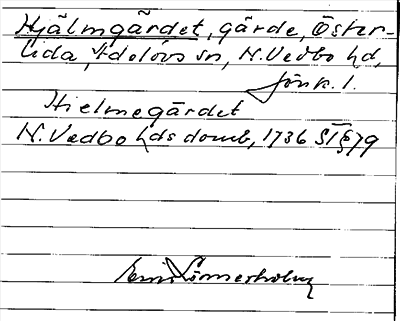 Hjälmgärdet, gärde, Öster-
lida, Adelövs sn, N. Vedbo hd,
Jönk. l.
Hielmegärdet
N. Vedbo hds domb, 1736 St § 79